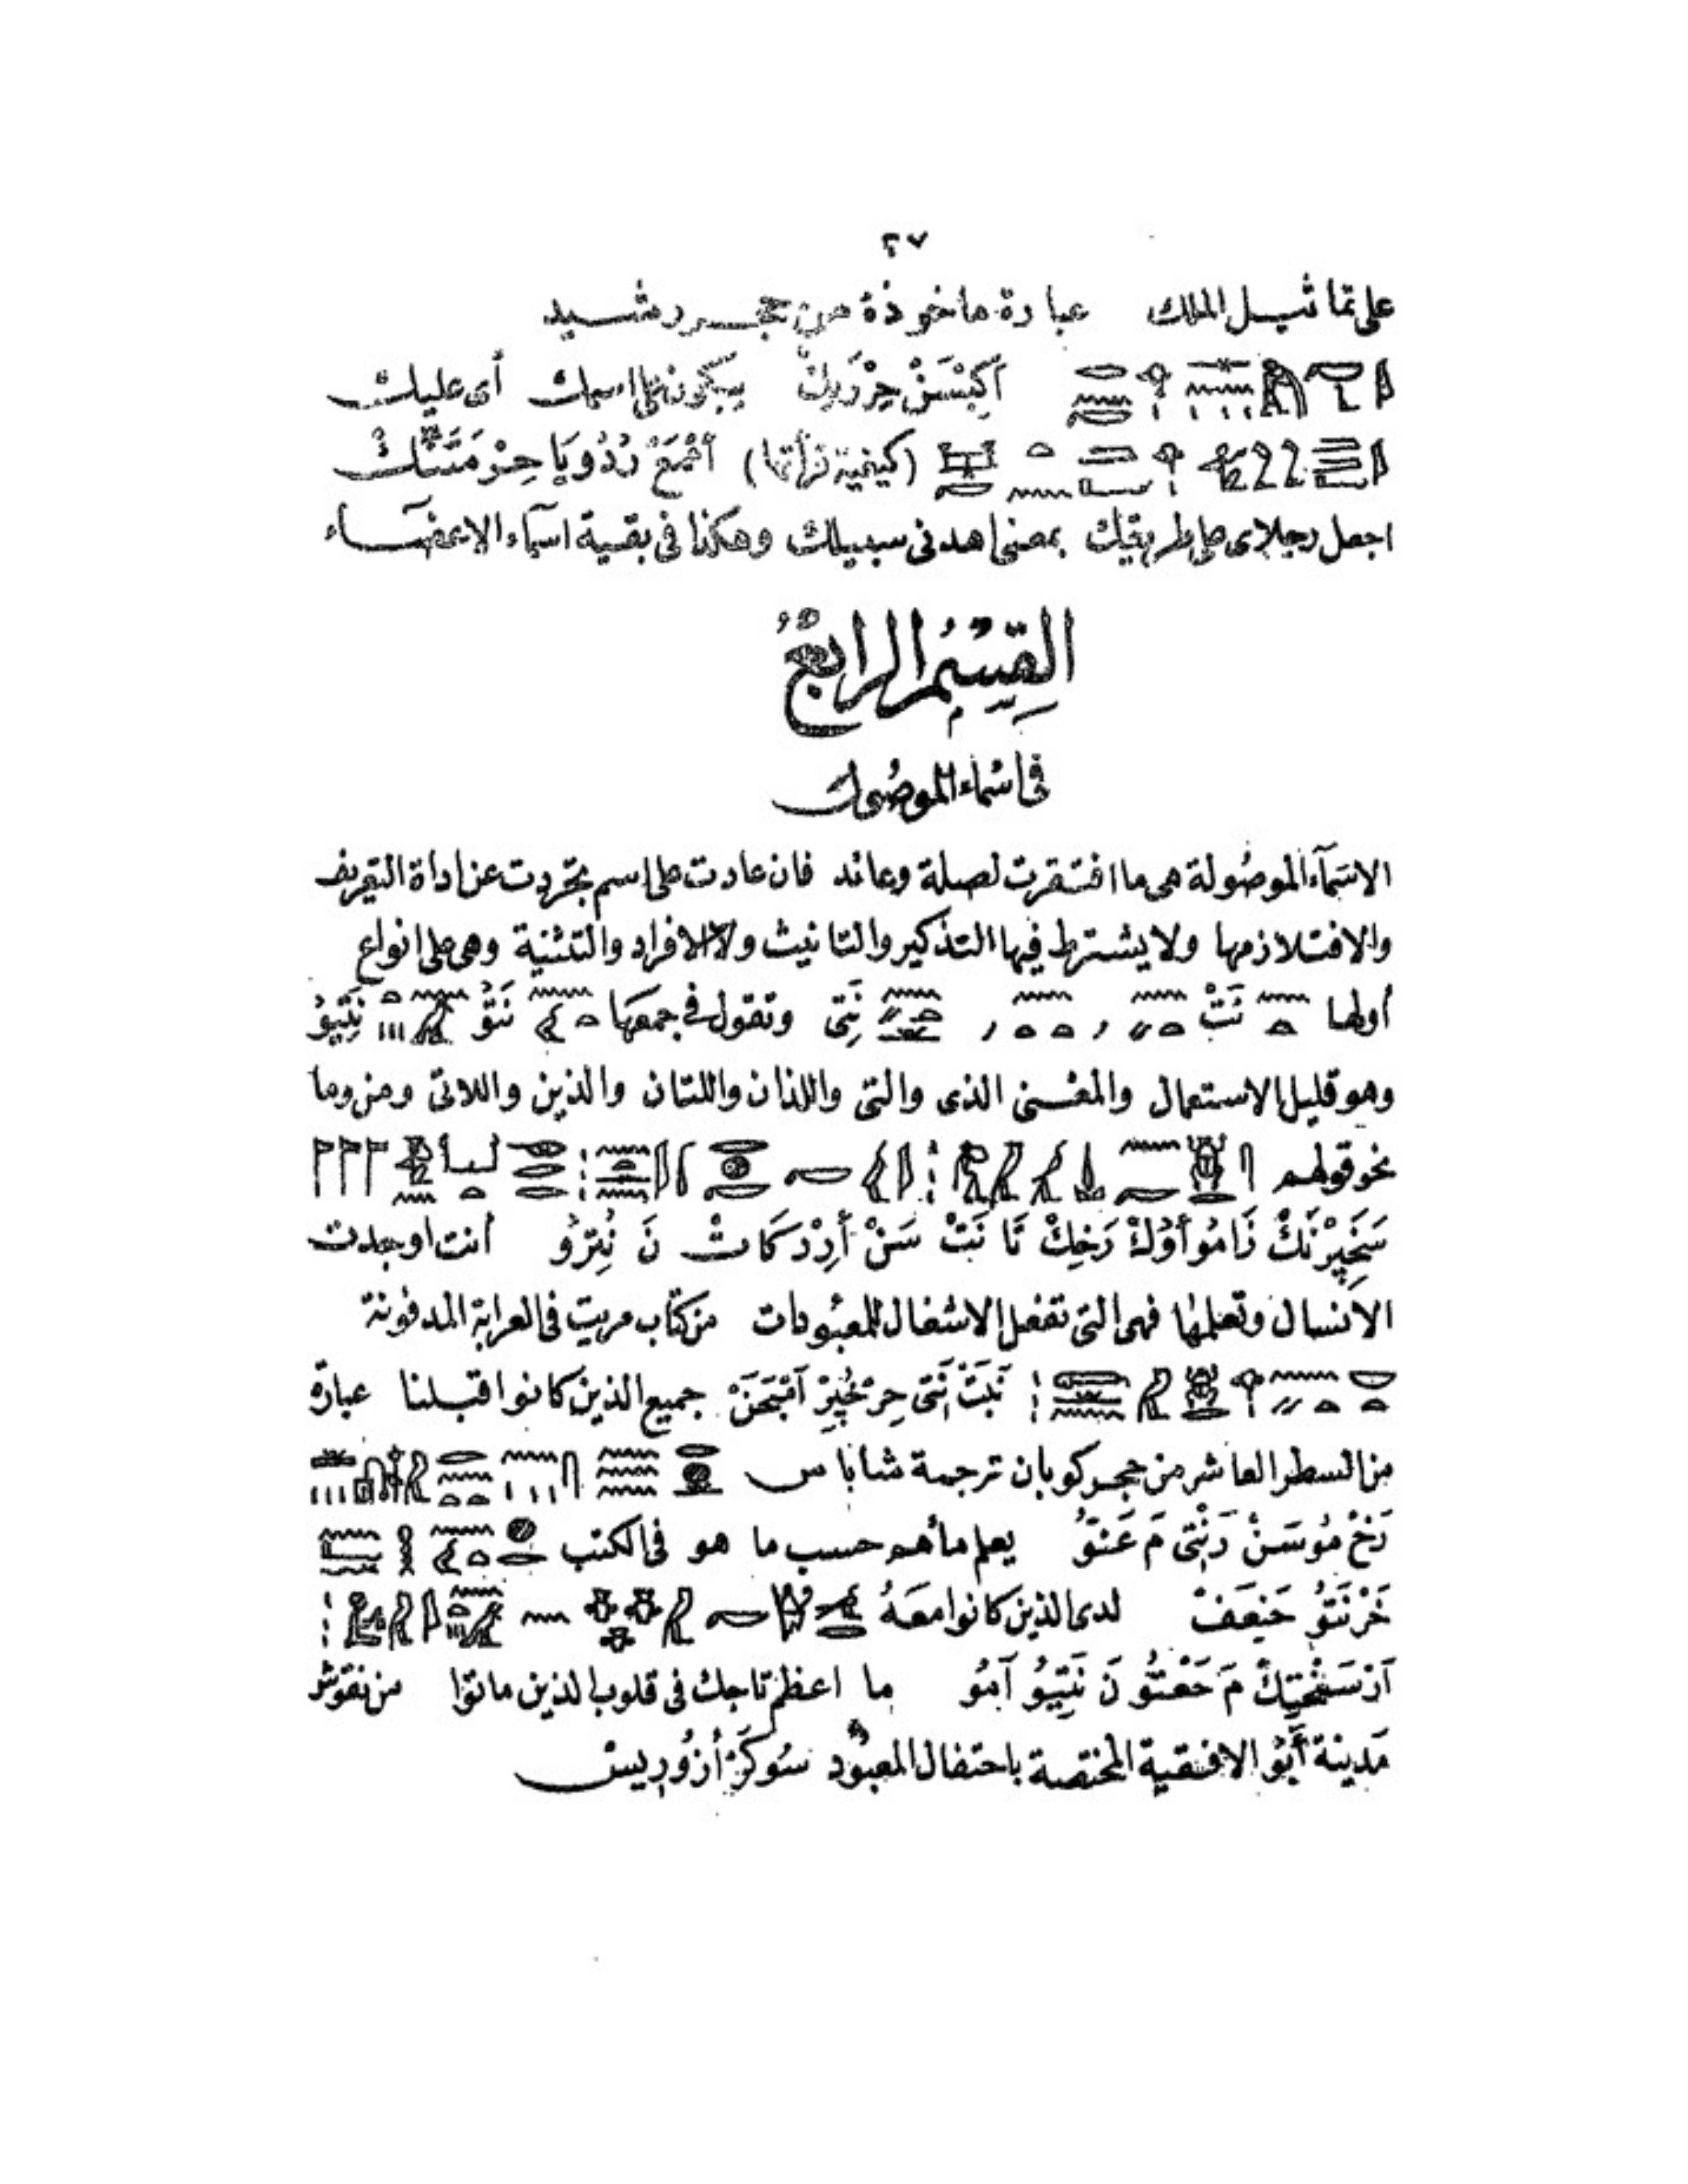 ٢٧
على تماثيل الملك عبارة ماخوذة من حجر رشيد
أَكِبْسَنْ حِرْرَنِكْ يبكون على اسمك أى عليك
(كيفية قرأتها) أَمْمَعْ رُدُويَا حِرْ مَتَنْكْ
اجعل رجلاى على طريقك بمعنى اهدنى سبيلك وهكذا فى بقية اسمآء الاعضاء
القِسْمُ الرابعُ
فى اسماء الموصُول
الاسَمآء الموصُولة هى ما افتقرت لصلة وعائد فان عادت على اسم تجردت عن اداة التعريف
والافتلازمها ولا يشترط فيها التذكير والتانيث ولا الافراد والتثنية وهى على انواع
أولها نَتْ نِتَى وتقول فى جمعها نَتُو نَتْيُو
وهو قليل الاستعمال والمعنى الذى والتى واللذان واللتان والذين واللاتى ومن وما
نحو قولهم
سَخِپِرْنَكْ ذَامُو أوُكْ رَخِكْ تَا نَتْ سَنْ أَرِرْ كَاتْ نَ نُتِرُو أنت اوجدت
الانسال وتعلمها فهى التى تفعل الاشغال للمعبُودات من كتاب مريت فى العرابة المدفونة
نَبَتْ نَتَى حِرْ خُپِرْ آمْبَحَنْ جميع الذين كانوا قبلنا عبارة
من السطر العاشر من حجر كوبان ترجمة شاباس
رَخْ مُوسَنْ رَنْتَى مَ عَنْوُ يعلم ماهم حسب ما هو فى الكتب
خَرْ نَتُو حَنِعَفْ لدى الذين كانوا معَهُ
مَ حَعْتُو نَ نَتِيُو آمُو ما اعظم تاجك فى قلوب الذين ماتوا من نقوش
مَدينة أَبُو الافقية المختصة باحتفال المعبُود سُوكَرْ أُزُورِيسْ